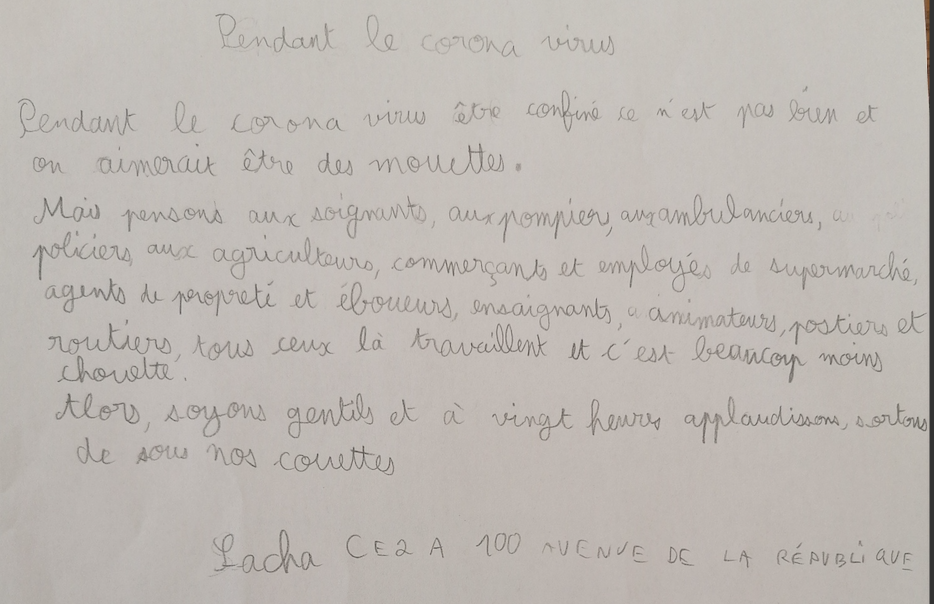 Pendant le corona virus
Pendant le corona virus être confiné ce n'est pas bien et
on aimerait être des mouettes.
Mais pensons aux soignants, aux pompiers, aux ambulanciers,
policiers, aux agriculteurs, commerçants et employés de supermarché,
agents de propreté et éboueurs, ensaignants, animateurs, postiers et
routiers, tous ceux là travaillent et c'est beaucoup moins
chouette.
Alors, soyons gentils et à vingt heures applaudissons, sortons
de sous nos couettes
Sacha CE2 A 100 AVENUE DE LA RÉPUBLIQUE